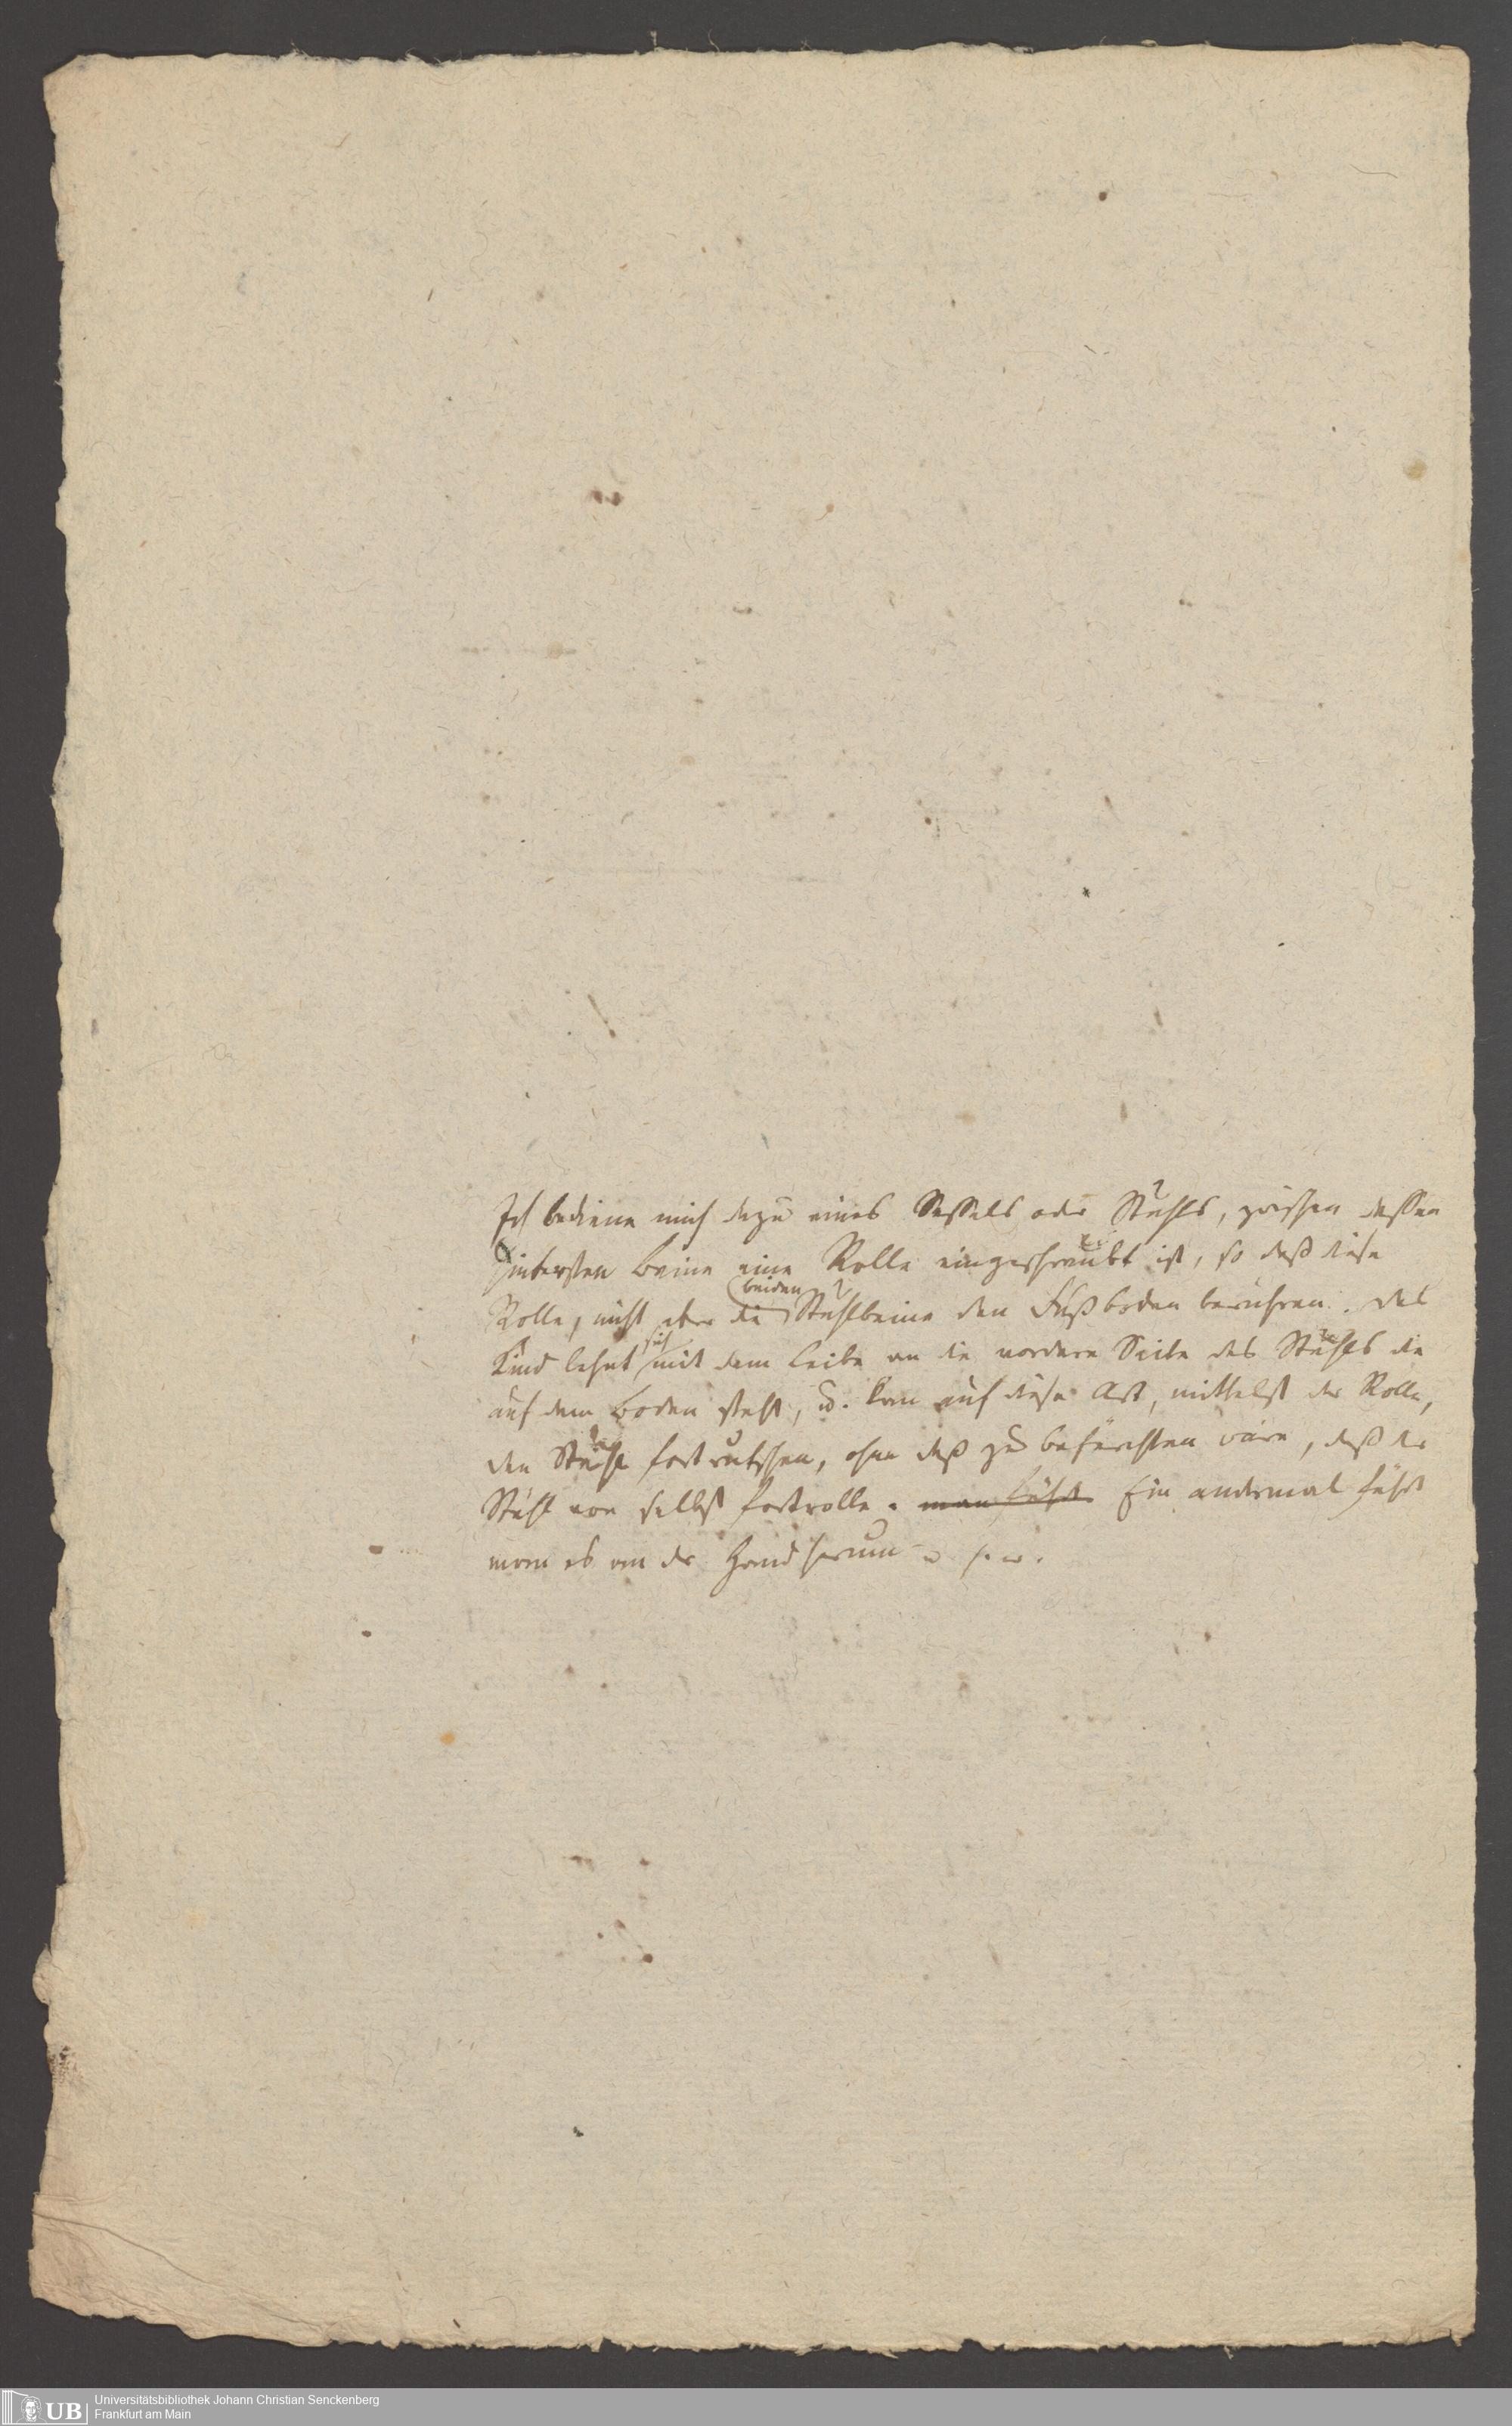 Ich bediene mich dazu eines Sessels oder Stuhls, zwischen dessen
hintersten Beine eine Rolle eingeschraubt ist, so daß diese
Rolle, nicht aber die beiden Stuhlbeine den Fußboden berühren. Das
Kind lehnt sich mit dem Leibe an die vordere Seite des Stuhls die
auf dem Boden steht, u. kan auf diese Art, mittelst der Rolle,
den Stuhl fortrutschen, ohne daß zu befürchten wäre, daß der
Stuhl von selbst fortrolle. man führt Ein andermal führt
man es an der Hand herum u. s. w.
UB
Universitätsbibliothek Johann Christian Senckenberg
Frankfurt am Main